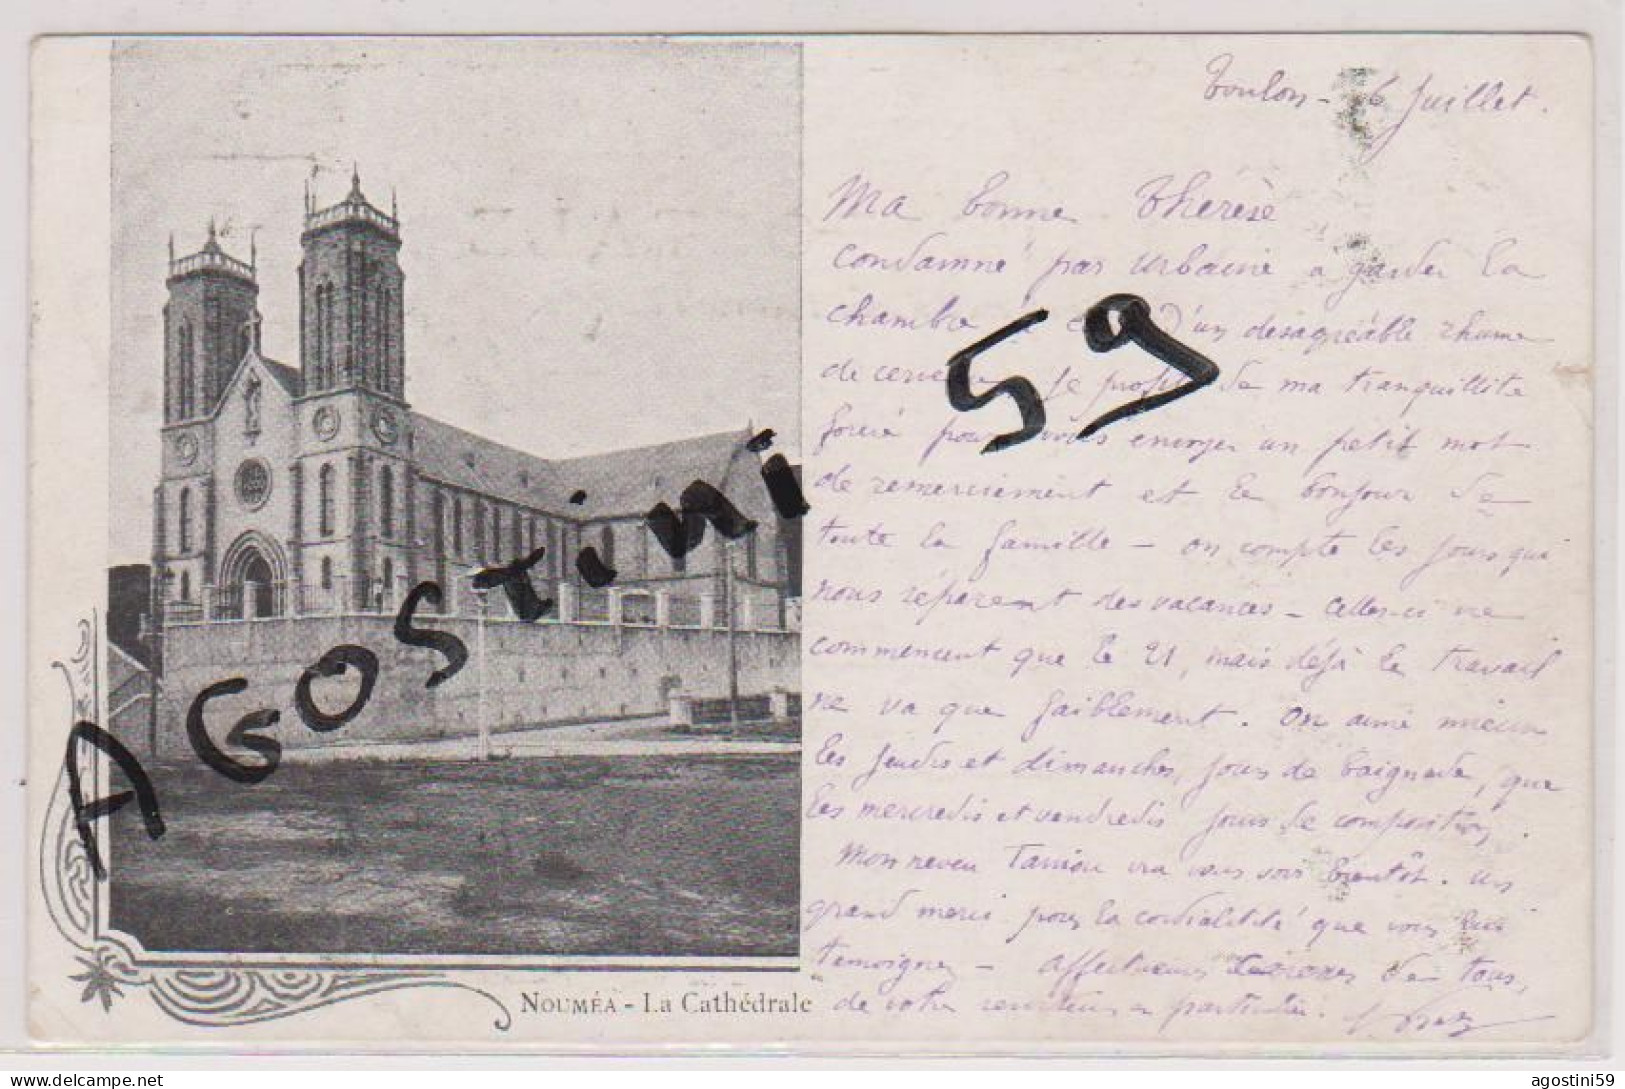 Toulon - 6 Juillet.
Ma bonne Thérèse
condamné par Urbaine a garder la
chambre d'un desagréable rhume
de je profite de ma tranquillité
forcée pour vous envoyer un petit mot
de remerciement et le bonjour de
toute la famille - on compte les jours qui
nous séparent des vacances - celles-ci ne
commencent que le 21, mais déjà le travail
ne va que faiblement. On aime mieux
les jeudis et dimanches, jours de baignade, que
les mercredis et vendredis jours de composition.
Mon neveu ira vous voir bientôt. un
grand merci pour la cordialité que vous lui
témoignez - Affectueux de tous,
de votre en particulier.
AGOSTINI 59
NOUMÉA - La Cathédrale
agostini59